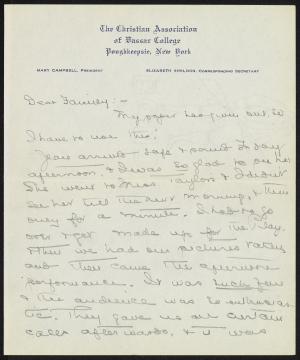 The Christian Association
of Vassar College
Poughkeepsie, New York
MARY CAMPBELL, PRESIDENT
ELIZABETH SHELDON, CORRESPONDING SECRETARY
Dear Family:-
My paper has given out, so
I have to use this!
Jean arrived safe & sound Friday
afternoon. I was so glad to see her.
She went to Miss Taylor's & I didn't
see her till the next morning, & then
only for a minute. I had to go
over & get made up for the Play.
Then we had our pictures taken
and then came the afternoon
performance. It was such fun
& the audience was so enthusias-
tic. They gave us our curtain
calls afterwards, & it was